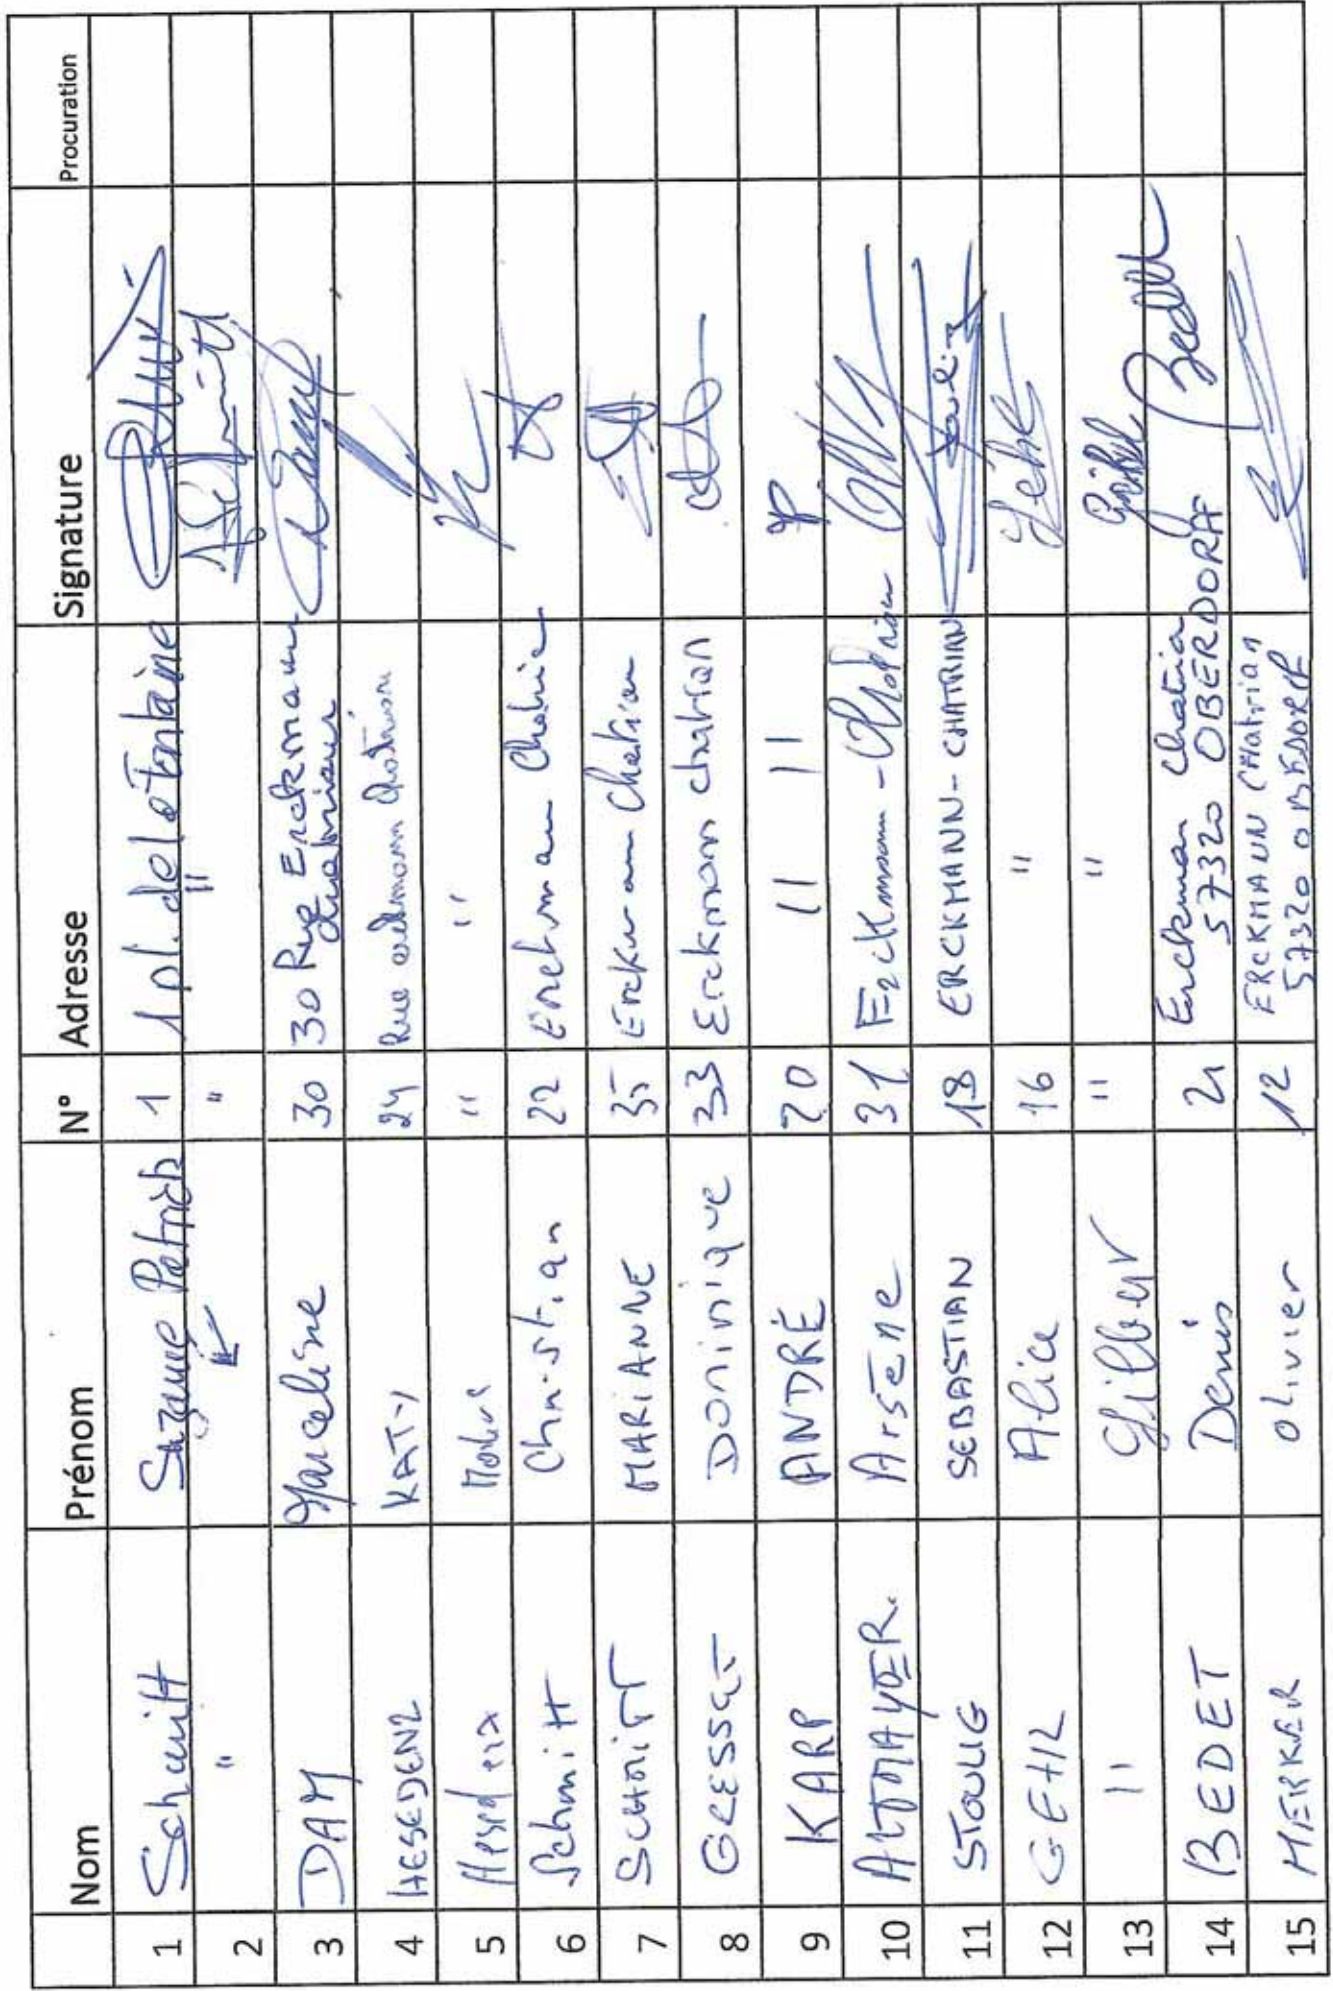 Nom Prénom N° Adresse Signature Procuration
1 Schmitt Suzanne Patrick 1 1 pl. de la Fontaine
2 " " "
3 DAM Marceline 30 30 Rue Erckmann
Chatrian
4 HESEDENZ KATY 24 Rue
5 " "
6 Schmitt Christian 22 Erckmann Chatrian
7 SCHMITT MARIANNE 35 Erckmann Chatrian
8 GRESSET DOMINIQUE 33 Erckmann chatrian
9 KARP ANDRÉ 20 " "
10 ALTMAYER. Arsène 31 Erckmann-Chatrian
11 STOULIG SEBASTIAN 18 ERCKMANN-CHATRIAN
12 GEHL Alice 16 "
13 " Gilbert " "
14 BEDET Denis 21 Erckman Chatrian
57320 OBERDORF
15 MERKER Olivier 12 ERCKMANN CHATRIAN
57320 OBERDORF